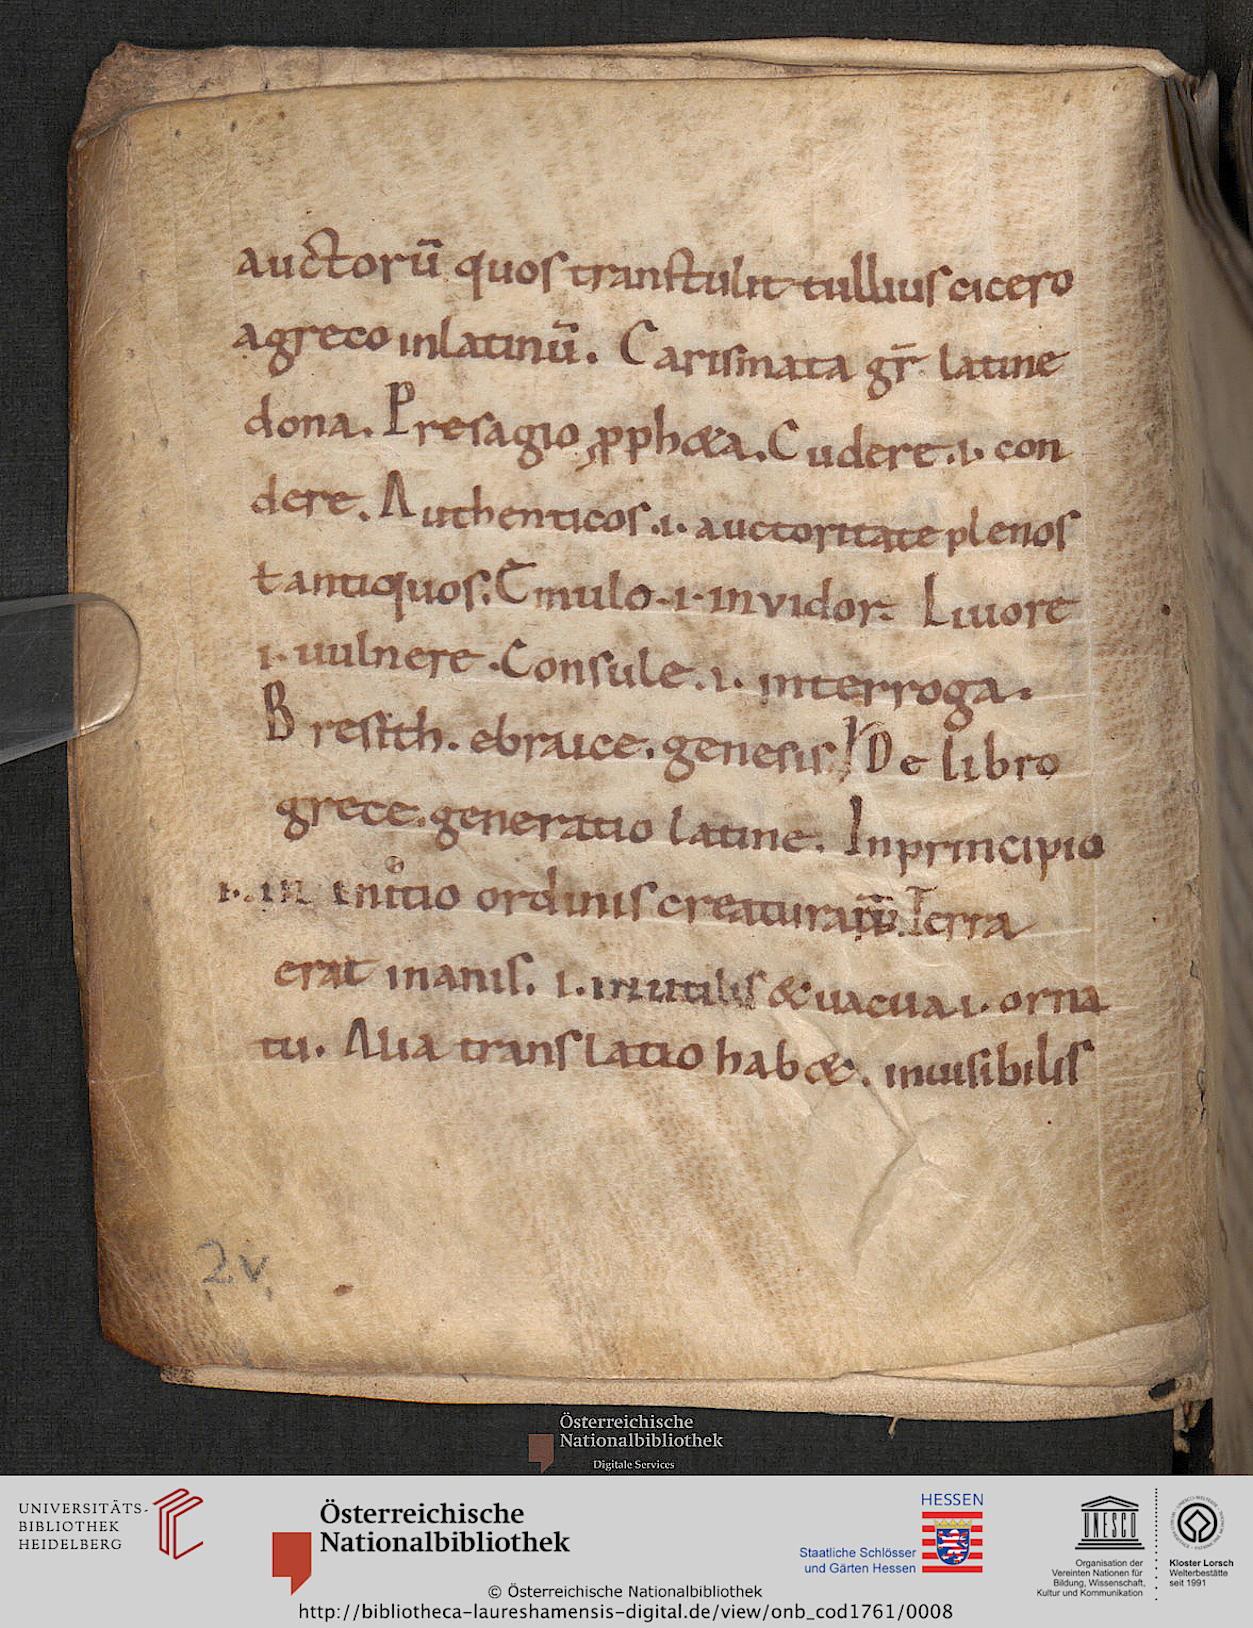 auctorū quos transtulit tullius cicero
agreco inlatinū. Carismata gr̄ latine
dona. Presagio ꝓphetia. Cudere .i. con
dere. Authenticos .i. auctoritate plenos
t antiquos. Emulo .i. invidor. Livore
.i. uulnere. Consule .i. interroga.
Bresith. ebraice. genesis De libro
grece. generatio latine. Inprincipio
.i. in initio ordinis creaturarū. Terra
erat inanis. .i. inutilis & uacua .i. orna
tu. Alia translatio hab&. inuisibilis
2v
Österreichische
Nationalbibliothek
Digitale Services
UNIVERSITÄTS-
BIBLIOTHEK
HEIDELBERG
Österreichische
Nationalbibliothek
HESSEN
Staatliche Schlösser
und Gärten Hessen
UNESCO
Organisation der
Vereinten Nationen für
Bildung, Wissenschaft,
Kultur und Kommunikation
Kloster Lorsch
Welterbestätte
seit 1991
© Österreichische Nationalbibliothek
http://bibliotheca-laureshamensis-digital.de/view/onb_cod1761/0008